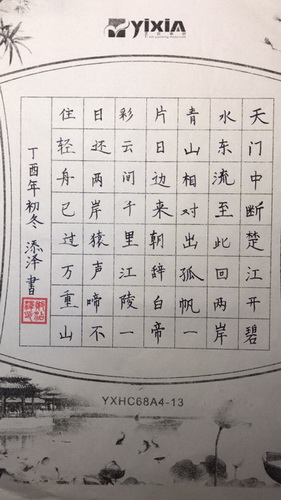 YIXIA
天门中断楚江开碧
水东流至此回两岸
青山相对出孤帆一
片日边来朝辞白帝
彩云间千里江陵一
日还两岸猿声啼不
住轻舟已过万重山
丁酉年初冬 添泽书
YXHC68A4-13